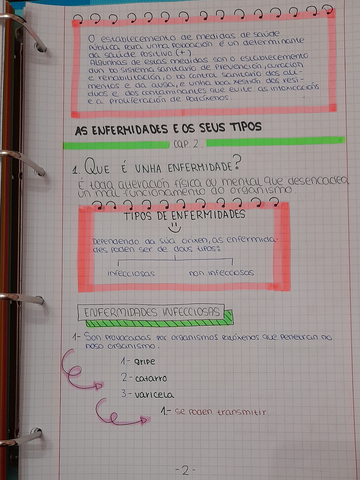 O establecemento de medidas de saúde
pública para unha poboación é un determinante
da saúde positiva (+)
Algunhas de estas medidas son o establecemento
dun bo sistema sanitario de prevención, curación
e rehabilitación, o bo control sanitario dos ali-
mentos e da auga, e unha boa xestión dos resi-
duos e dos contaminantes que evite as intoxicacións
e a proliferación de patóxenos.
AS ENFERMIDADES E OS SEUS TIPOS
CAP 2.
1. QUE É UNHA ENFERMIDADE?
É toda alteración física ou mental que desencadea
un mal funcionamento do organismo
TIPOS DE ENFERMIDADES
Dependendo da súa orixen, as enfermida-
des poden ser de dous tipos:
infecciosas non infecciosas
ENFERMIDADES INFECCIOSAS
1- Son provocadas por organismos patóxenos que penetran no
noso organismo.
1- gripe
2- catarro
3- varicela
1.- se poden transmitir.
-2-